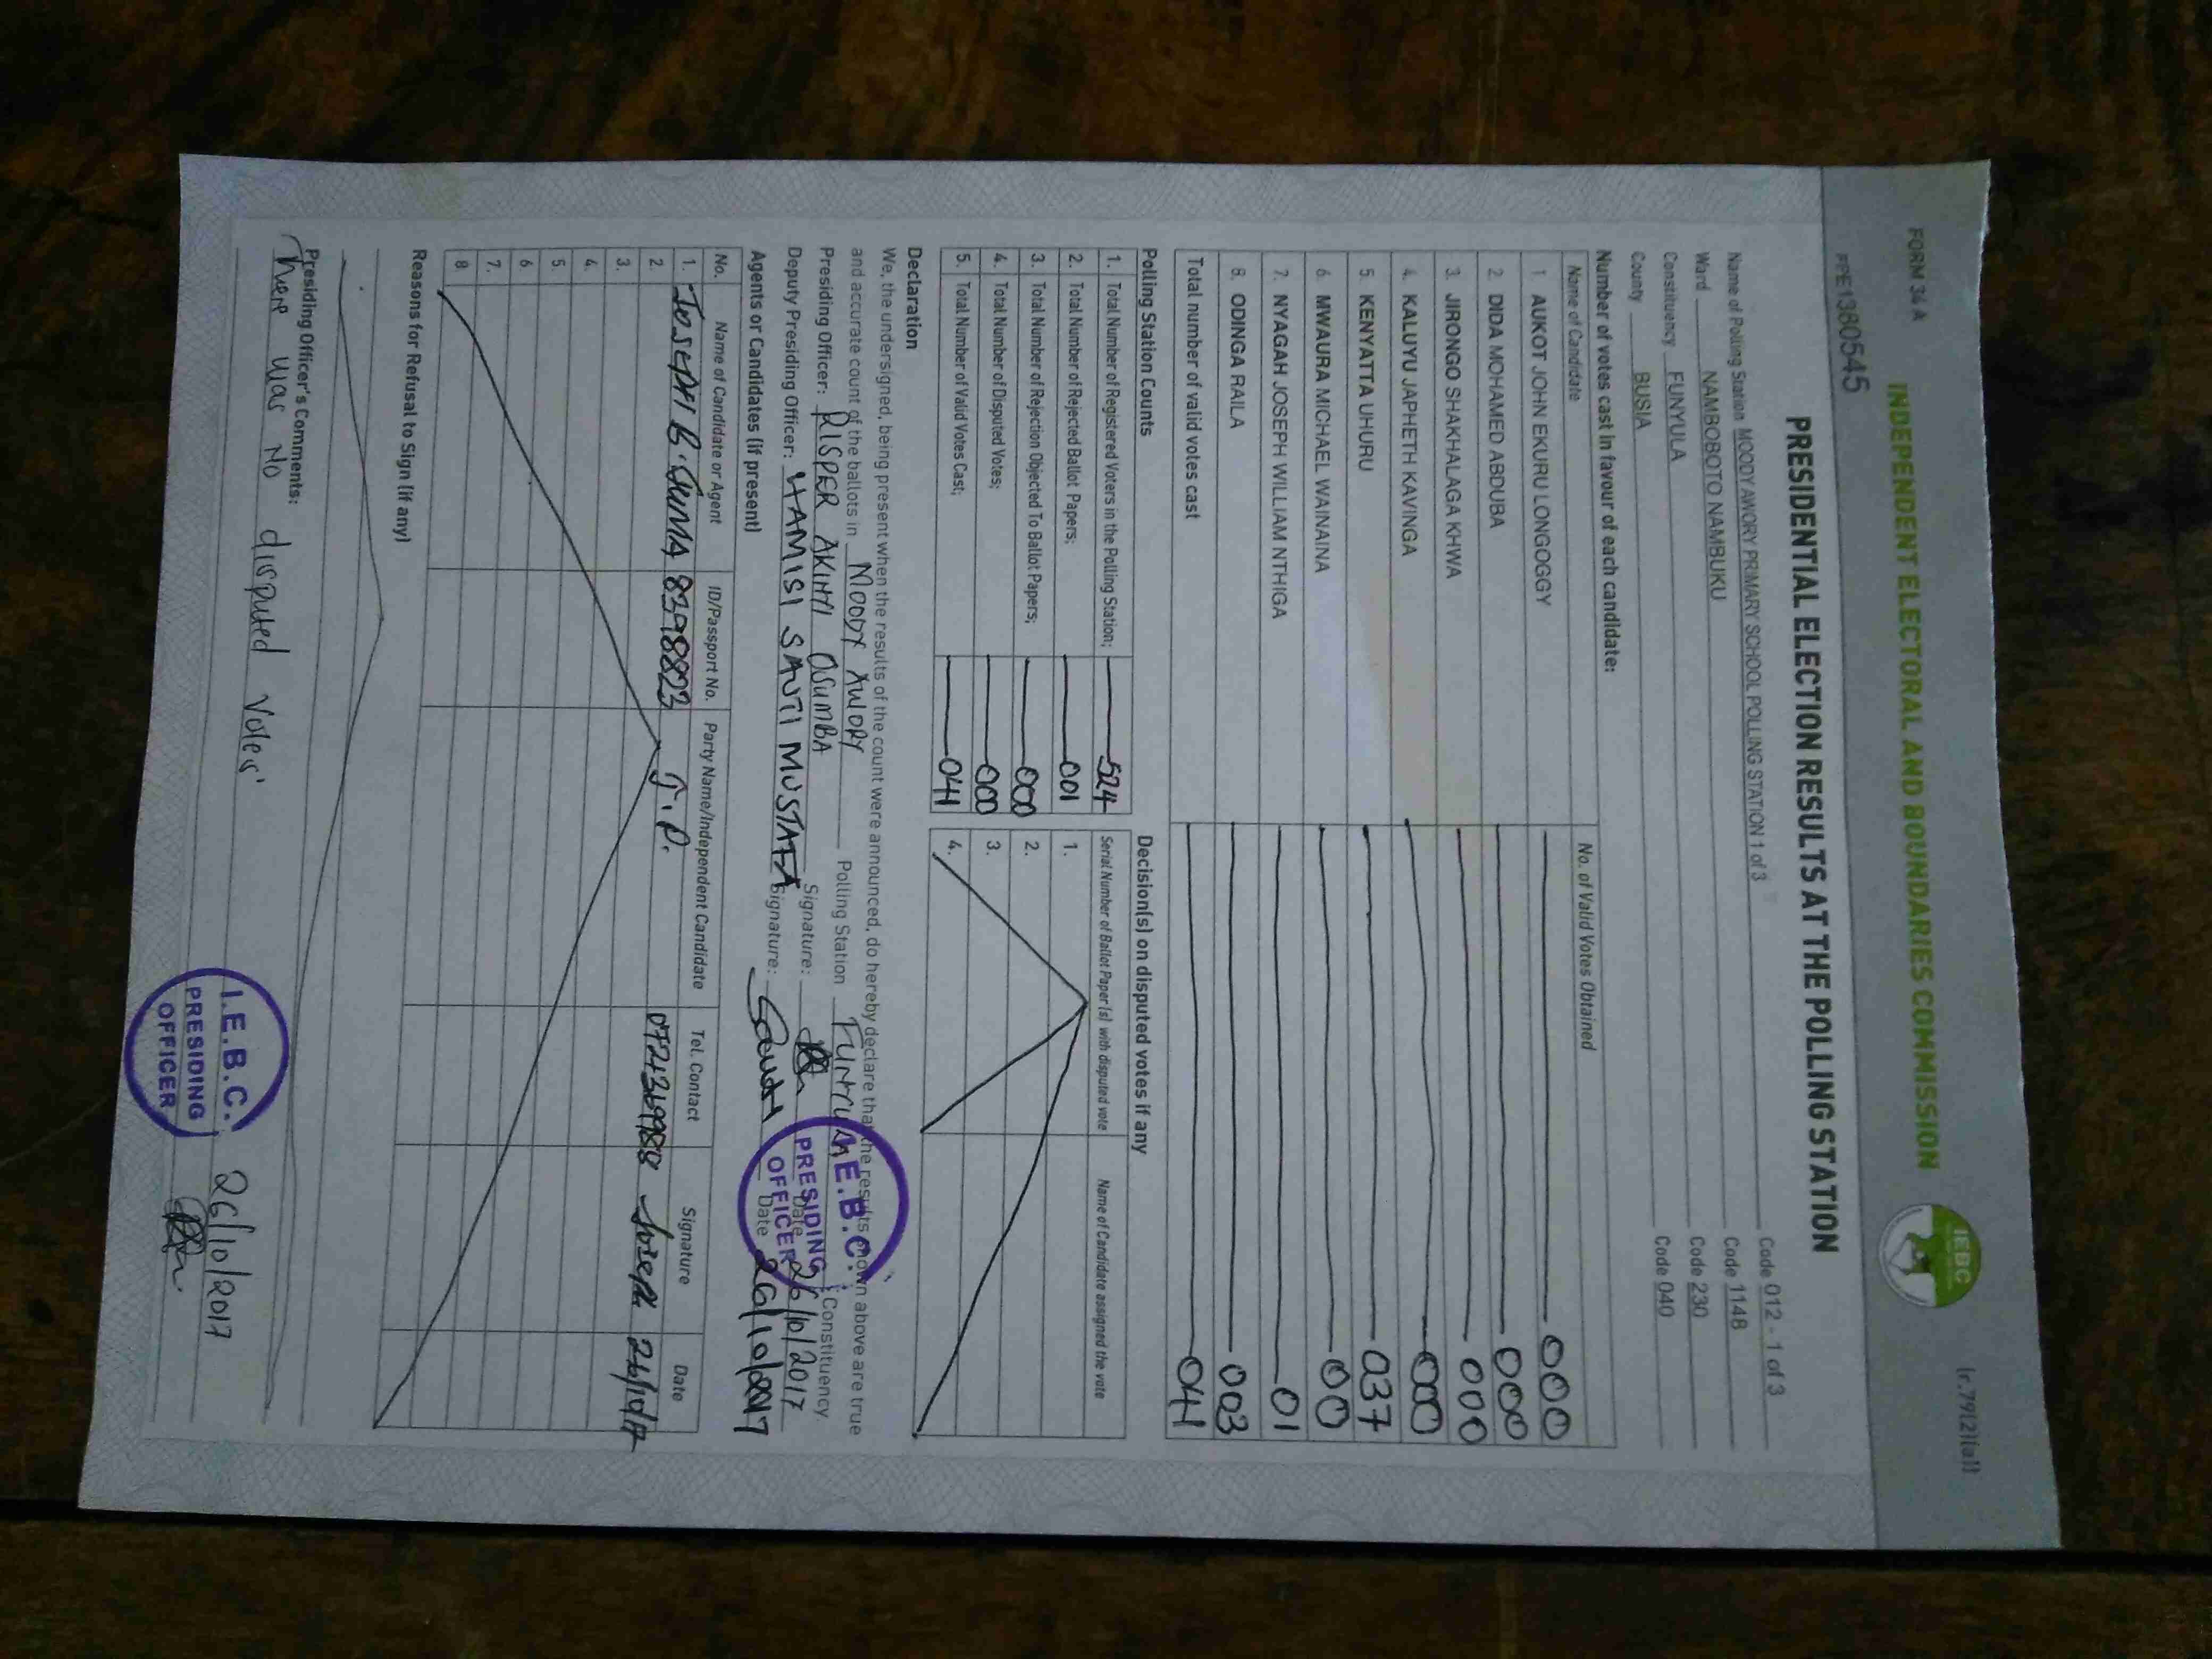 FORM 34 A
(r.79(2)(a))
INDEPENDENT ELECTORAL AND BOUNDARIES COMMISSION
IEBC
PPE1380545
PRESIDENTIAL ELECTION RESULTS AT THE POLLING STATION
Name of Polling Station MOODY AWORY PRIMARY SCHOOL POLLING STATION 1 of 3 Code 012 - 1 of 3
Ward NAMBOBOTO NAMBUKU Code 1148
Constituency FUNYULA Code 230
County BUSIA Code 040
Number of votes cast in favour of each candidate:
Name of Candidate No. of Valid Votes Obtained
1 AUKOT JOHN EKURU LONGOGGY 000
2. DIDA MOHAMED ABDUBA 000
3. JIRONGO SHAKHALAGA KHWA 000
4. KALUYU JAPHETH KAVINGA 000
5. KENYATTA UHURU 037
6. MWAURA MICHAEL WAINAINA 00
7. NYAGAH JOSEPH WILLIAM NTHIGA 01
8. ODINGA RAILA 003
Total number of valid votes cast 041
Polling Station Counts
1. Total Number of Registered Voters in the Polling Station; 524
2. Total Number of Rejected Ballot Papers; 001
3. Total Number of Rejection Objected To Ballot Papers; 000
4. Total Number of Disputed Votes; 000
5. Total Number of Valid Votes Cast; 041
Decision(s) on disputed votes if any
Serial Number of Ballot Paper(s) with disputed vote Name of Candidate assigned the vote
1.
2.
3.
4.
Declaration
We, the undersigned, being present when the results of the count were announced, do hereby declare that the results shown above are true
and accurate count of the ballots in MOODY AWORY Polling Station Constituency
Presiding Officer: RISPER AKINYI OSUMBA Signature: Date 26/10/2017
Deputy Presiding Officer: HAMISI SAUTI MUSTAFA Signature: Date 26/10/2017
I.E.B.C.
PRESIDING
OFFICER
Agents or Candidates (if present)
No. Name of Candidate or Agent ID/Passport No. Party Name/Independent Candidate Tel. Contact Signature Date
1. JOSEPH B. JUMA 8398823 J.P. 0721369988 Joseph 26/10/17
2.
3.
4.
5.
6
7.
8.
Reasons for Refusal to Sign (if any)
Presiding Officer's Comments:
There was NO disputed votes'
I.E.B.C.
PRESIDING
OFFICER
26/10/2017